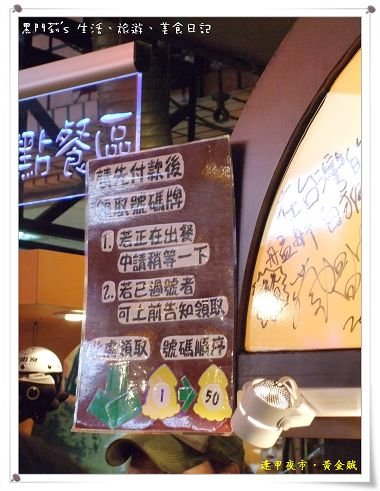 黑門荔's 生活、旅遊、美食日記
點餐區
請先付款後
領取號碼牌
1. 若正在出餐
中請稍等一下
2. 若已過號者
可上前告知領取
此處領取 號碼順序
1 50
逢甲夜市·黃金賊